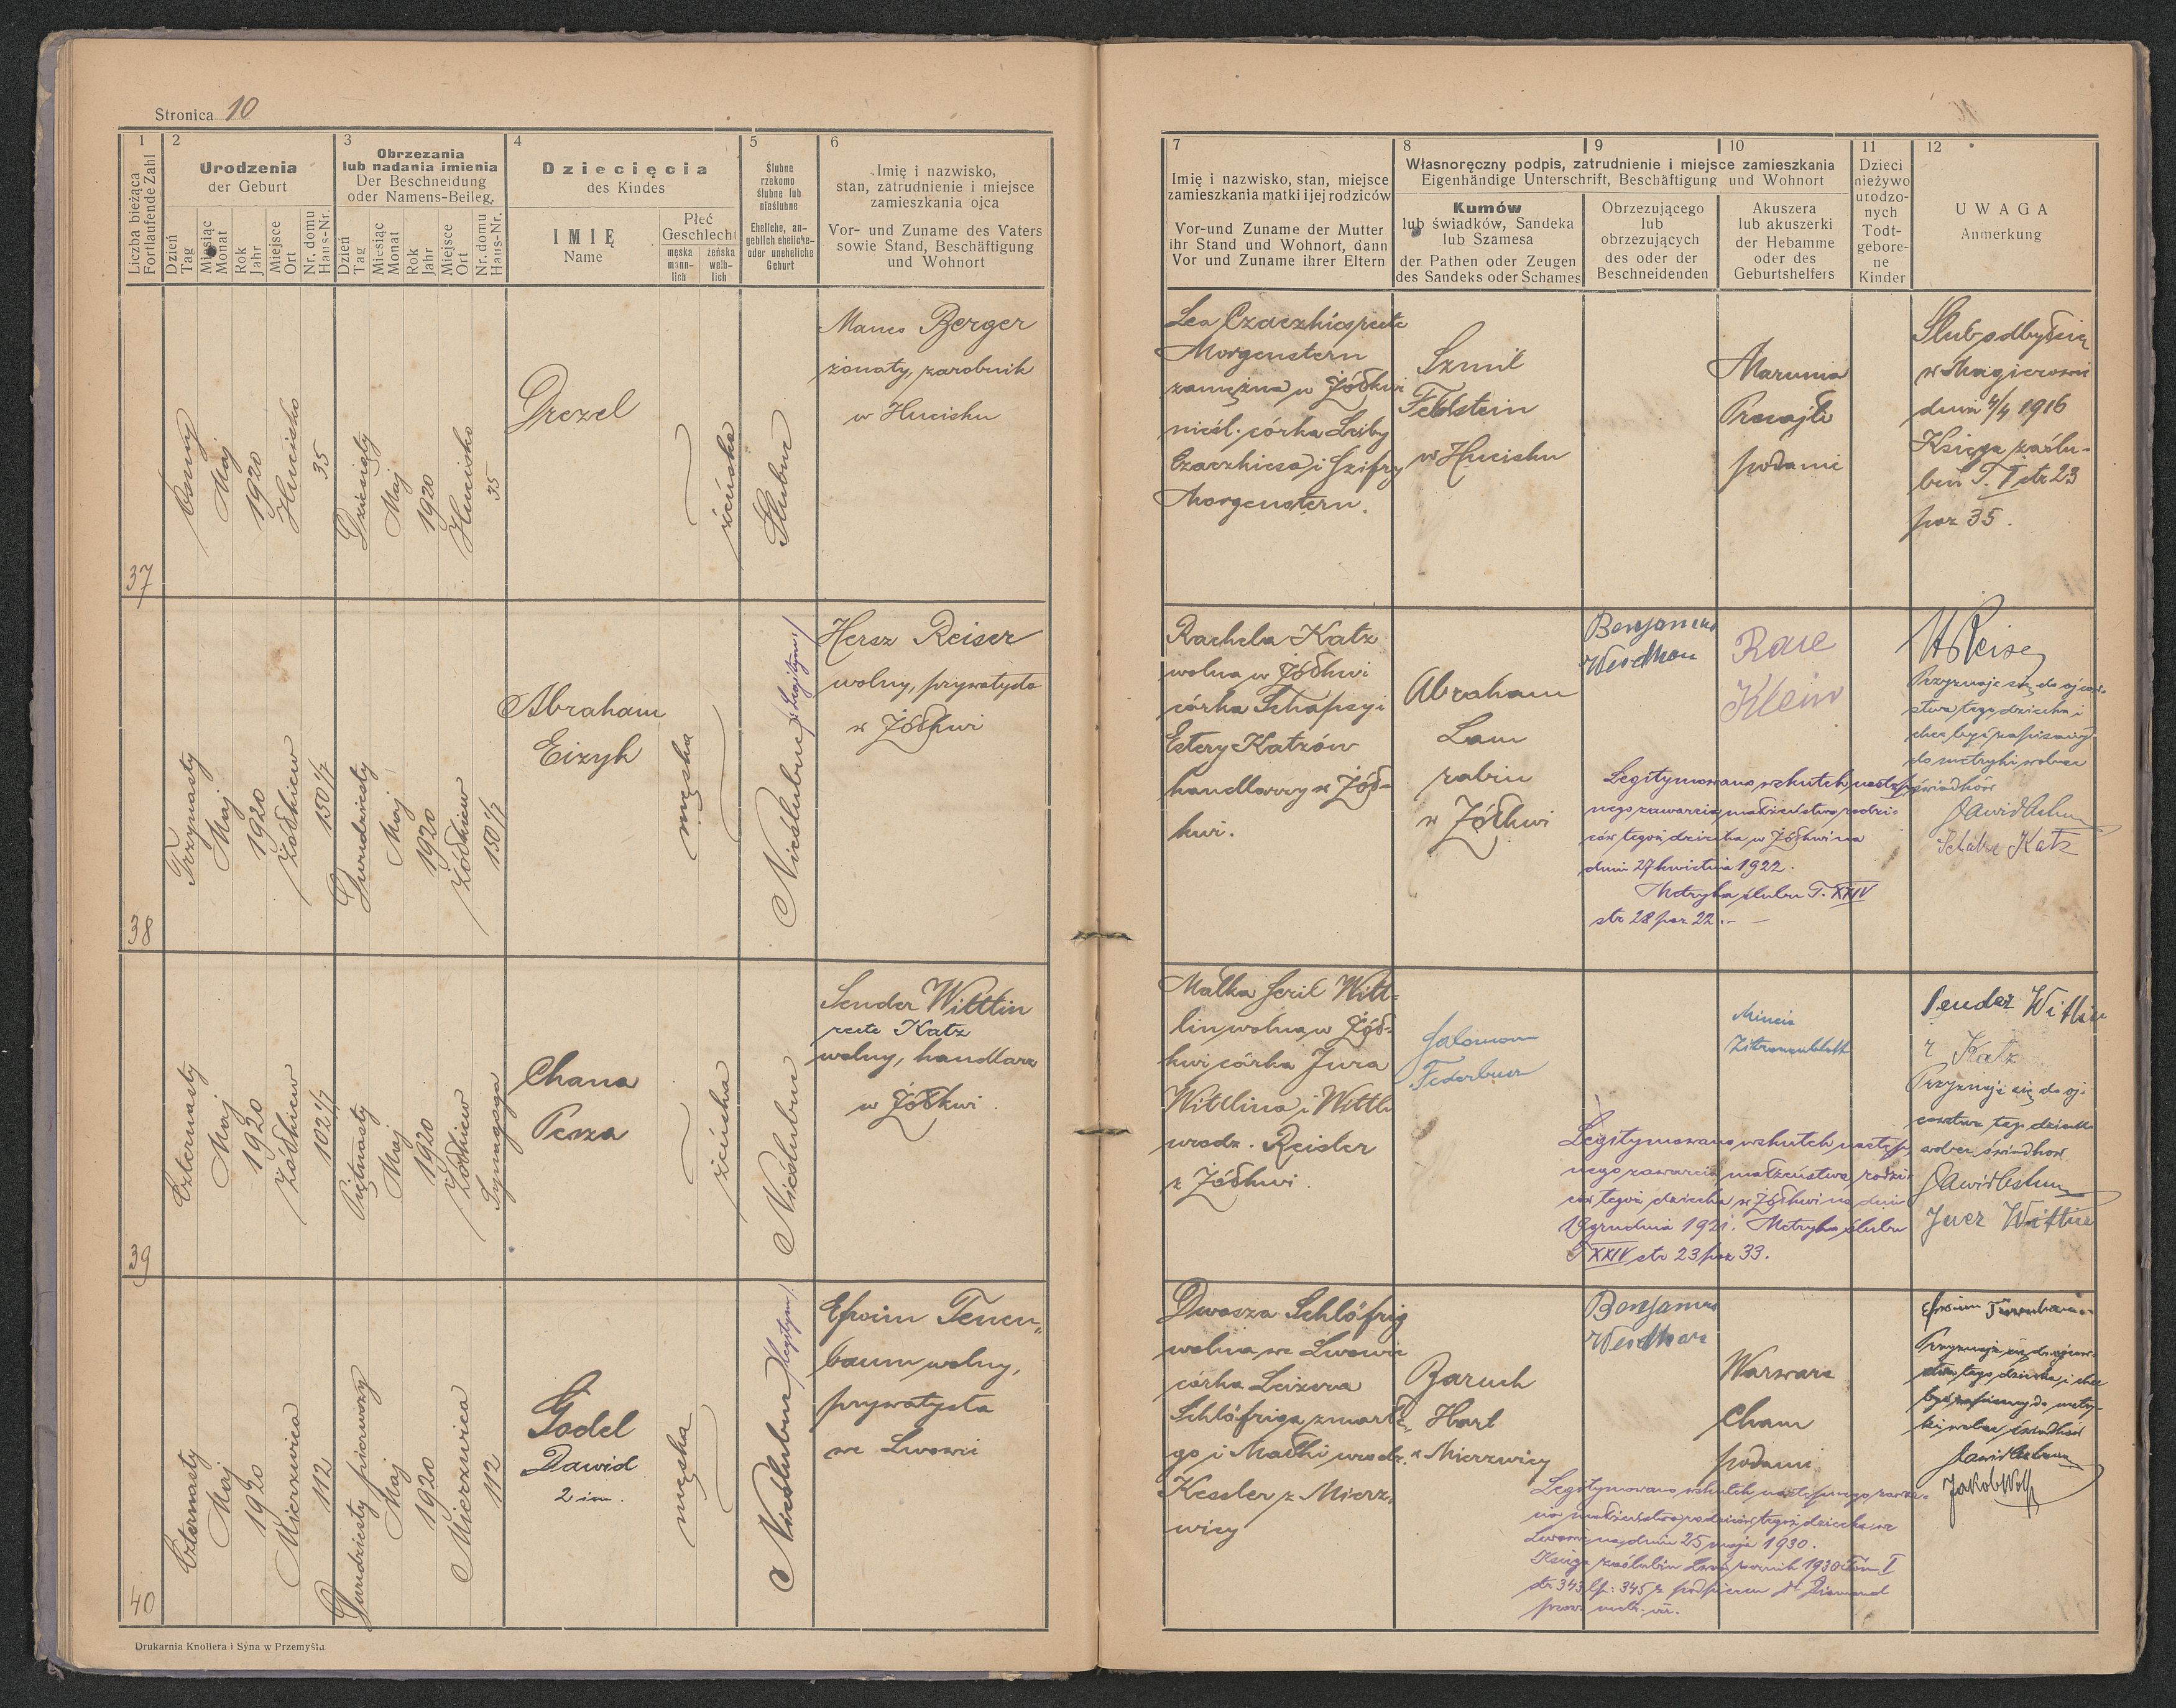 Stronica 10
1
Liczba bieżąca
Fortlaufende Zahl
2
Urodzenia
der Geburt
Dzień
Tag
Miesiąc
Monat
Rok
Jahr
Miejsce
Ort
Nr. domu
Haus-Nr.
3
Obrzezania
lub nadania imienia
Der Beschneidung
oder Namens-Beileg.
Dzień
Tag
Miesiąc
Monat
Rok
Jahr
Miejsce
Ort
Nr. domu
Haus-Nr.
4
Dziecięcia
des Kindes
IMIĘ
Name
Płeć
Geschlecht
męska
männ-
lich
żeńska
weib-
lich
5
Ślubne
rzekomo
ślubne lub
nieślubne
Eheliche, an-
geblich eheliche-
oder uneheliche
Geburt
6
Imię i nazwisko,
stan, zatrudnienie i miejsce
zamieszkania ojca
Vor- und Zuname des Vaters
sowie Stand, Beschäftigung
und Wohnort
7
Imię i nazwisko, stan, miejsce
zamieszkania matki i jej rodziców
Vor-und Zuname der Mutter
ihr Stand und Wohnort, dann
Vor und Zuname ihrer Eltern
8
9
10
Własnoręczny podpis, zatrudnienie i miejsce zamieszkania
Eigenhändige Unterschrift, Beschäftigung und Wohnort
Kumów
lub świadków, Sandeka
lub Szamesa
der Pathen oder Zeugen
des Sandeks oder Schames
Obrzezującego
lub
obrzezujących
des oder der
Beschneidenden
Akuszera
lub akuszerki
der Hebamme
oder des
Geburtshelfers
11
Dzieci
nieżywo
urodzo-
nych
Todt-
gebore-
ne
Kinder
12
UWAGA
Anmerkung
37
Ósmy
Maj
1920
Hucisko
35
Dziesiąty
Maj
1920
Hucisko
35
Drezel
żeńska
Ślubne
Manes Berger
żonaty, zarobnik
w Hucisku
Lea Czaczkies recte
Morgenstern
zamężna w Żółkwi
nieśl. córka Leiby
Czaczkiesa i Szifry
Morgenstern.
Szmil
Feldstein
w Hucisku
Marunia
podanie
Ślub odbył się
w Magierowie
dnia 4/4 1916
Księga zaślu-
bin T. I str 23
poz 35.
38
Trzynasty
Maj
1920
Żółkiew
150 1/2
Dwudziesty
Maj
1920
Żółkiew
150 1/2
Abraham
Eizyk
męska
Nieślubne /: Legitym: /
Hersz Reiser
wolny, prywatysta
w Żółkwi
Rachela Katz
wolna w Żółkwi
córka Schapsy i
Estery Katzów
handlarzy w Żół-
kwi.
Abraham
Lam
rabin
w Żółkwi
Benjamin
Rose
Klein
Legitymowano wskutek następ-
nego zawarcia małżeństwa rodzi-
ców tegoż dziecka w Żółkwi na
dniu 27 kwietnia 1922.
Metryka ślubu T. XXIV
str 28 poz 22.-
H Reiser
Przyznaje się do ojco-
stwa tego dziecka i
chce być zapisany
do metryki wobec
świadków
Schabse Katz
39
Czternasty
Maj
1920
Żółkiew
102 1/2
Piętnasty
Maj
1920
Żółkiew
Synagoga
Chana
Pesza
żeńska
Nieślubne
Sender Wittlin
recte Katz
wolny, handlarz
w Żółkwi.
Malka Seril Witt-
lin wolna w Żół-
kwi córka Jura
Wittlina i Wittli
urodz. Reisler
z Żółkwi.
Salomon
Federbusz
Mincie
Zitronenblatt
Legitymowano wskutek następ-
nego zawarcia małżeństwa rodzi-
ców tegoż dziecka w Żółkwi na dniu
19 grudnia 1921. Metryka ślubu
T XXIV str 23 poz 33.
Sender Wittlin
r Katz
Przyznaje się do oj-
costwa tego dziecka
wobec świadków
Juer Wittlin
40
Czternasty
Maj
1920
Mierzwica
112
Dwudziesty pierwszy
Maj
1920
Mierzwica
112
Godel
Dawid
2 im.
męska
Nieślubne /: legitym: /
Efroim Tenen-
baum wolny,
prywatysta
we Lwowie
Dwosza Schläfrig
wolna we Lwowie
córka Leizora
Schläfriga zmarłe-
go i Malki urodz.
Kessler z Mierz-
wicy
Baruch
Hart
z Mierzwicy
Benjamin
Warwara
Cham
podanie
Legitymowano wskutek następnego zawar-
cia małżeństwa rodziców tegoż dziecka we
Lwowie na dniu 25 maja 1930.
Księga zaślubin Lwów rocznik 1930 Tom I
str 343 lp: 345 z podpisem Dr Diamand
prow. metr. izr.
Efroim Tenenbaum
Przyznaje się do ojco-
stwa tego dziecka i chce
być zapisany do metry-
ki wobec świadków
Jakob Wolf
Drukarnia Knollera i Syna w Przemyślu